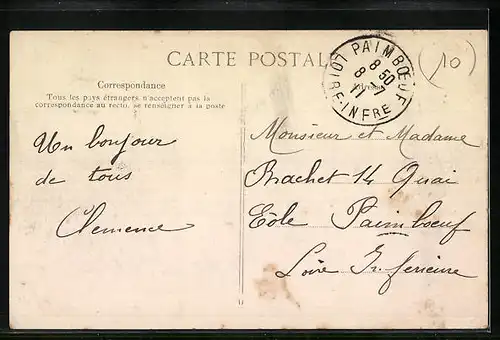 CARTE POSTALE
Correspondance
Tous les pays étrangers n'acceptent pas la
correspondance au recto, se renseigner à la poste
Un bonjour
de tous
Clemence
PAIMBŒUF
8 50
8
LOIRE-INFRE
(10)
Monsieur et Madame
Brachet 14 Quai
Eole Paimboeuf
Loire Inferieure